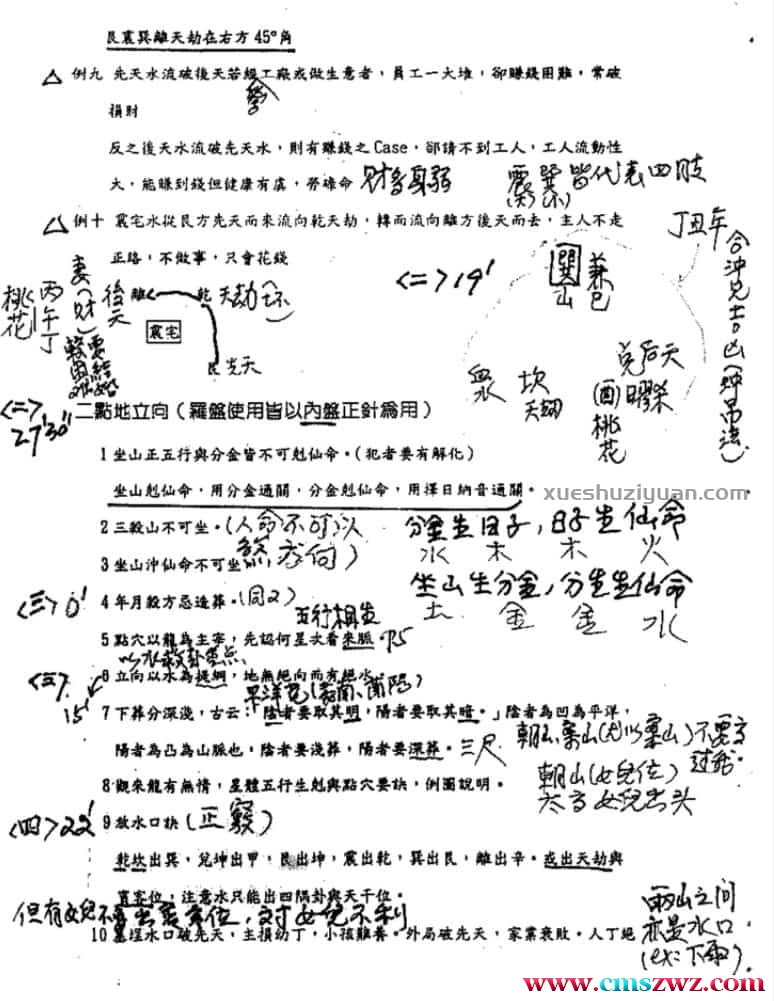 艮震巽離天劫在右方45°角
△ 例九 先天水流破後天若經工廠或做生意者，員工一大堆，卻賺錢困難，常破
營
損財
反之後天水流破先天水，則有賺錢之Case，卻請不到工人，工人流動性
大，能賺到錢但健康有虞，勞碌命 財多身弱
震 巽 皆代表四肢
丁丑年
△ 例十 震宅水從艮方先天而來流向乾天劫，轉而流向離方後天而去，主人不走
正路，不做事，只會花錢
<二>19'
巽山 兼巳
妻(財) 後天 離 乾 天劫
丙午丁
桃花
震宅
艮 先天
坎 天劫
兌后天
(酉)曜煞
桃花
<二>
27'30"
二點地立向（羅盤使用皆以內盤正針為用）
1 坐山正五行與分金皆不可剋仙命。（犯者要有解化）
坐山剋仙命，用分金通關，分金剋仙命，用擇日納音通關。
xueshuziyuan.com
2 三殺山不可坐。(人命不可以
分金生日子，日子生仙命
水 木 木 火
3 坐山沖仙命不可坐 煞 或向)
<三>0'
4 年月殺方忌造葬。(同2)
坐山生分金，分金生仙命
土 金 金 水
五行相生
5 點穴以龍為主宰，先認何星次看來脈。P5
<三>
15'
6 立向以水為提綱，地無絕向而有絕水
7 下葬分深淺，古云：「陰者要取其明，陽者要取其暗。」陰者為凹為平洋，
陽者為凸為山脈也，陰者要淺葬，陽者要深葬。三尺
朝山案山(尤以案山)不要高過
8 觀來龍有無情，星體五行生剋與點穴要訣，例圖說明。
朝山(女兒位)
太高女兒出头
<四>22'
9 放水口訣(正竅)
乾坎出巽，兌坤出甲，艮出坤，震出乾，巽出艮，離出辛。或出天劫與
賓客位，注意水只能出四隅卦與天干位。
但有女兒不要出賓客位，对女兒不利
兩山之間
亦是水口
(ex:下雨)
10 墓埕水口破先天，主損幼丁，小孩難養。外局破先天，家業衰敗。人丁絕
www.cmszwz.com